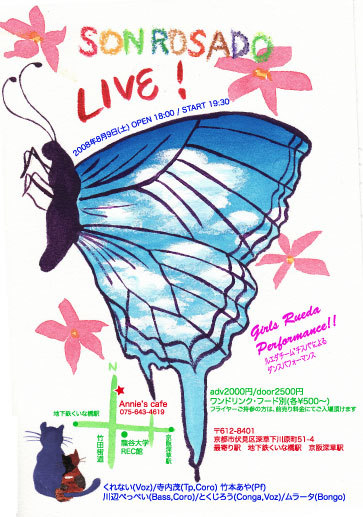 SON ROSADO
LIVE!
2008年8月9日(土) OPEN 18:00 / START 19:30
Girls Rueda
Performance!!
ルエダチーム「チスパ」による
ダンスパフォーマンス
N
Annie's cafe
075-643-4619
地下鉄くいな橋駅
竹田街道
龍谷大学
REC館
京阪深草駅
adv2000円/door2500円
ワンドリンク・フード別(各¥500〜)
フライヤーご持参の方は、前売り料金にてご入場頂けます
〒612-8401
京都市伏見区深草下川原町51-4
最寄り駅 地下鉄くいな橋駅 京阪深草駅
くれない(Voz)/寺内茂(Tp,Coro) 竹本あや(Pf)
川辺ぺっぺい(Bass,Coro)/とくじろう(Conga,Voz)/ムラータ(Bongo)